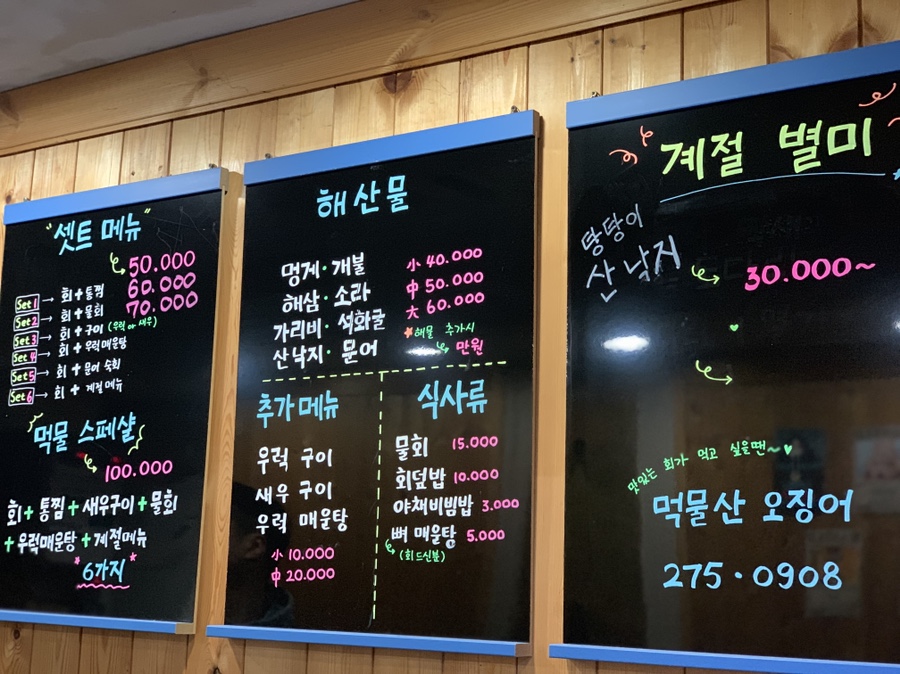 "셋트 메뉴"
50.000
60.000
70.000
Set 1 → 회 + 통찜
Set 2 → 회 + 물회
Set 3 → 회 + 구이 (우럭 or 새우)
Set 4 → 회 + 우럭매운탕
Set 5 → 회 + 문어 숙회
Set 6 → 회 + 계절메뉴
먹물 스페샬
100.000
회 + 통찜 + 새우구이 + 물회
+ 우럭매운탕 + 계절메뉴
*6가지*
해산물
멍게 · 개불 小 40.000
해삼 · 소라 中 50.000
가리비 · 석화굴 大 60.000
산낙지 · 문어
*해물 추가시
만원
추가메뉴
우럭 구이
새우 구이
우럭 매운탕
小 10.000
中 20.000
식사류
물회 15.000
회덮밥 10.000
야채비빔밥 3.000
뼈 매운탕 5.000
(회드신분)
계절 별미
탕탕이
산낙지 30.000~
맛있는 회가 먹고 싶을땐~♥
먹물산 오징어
275·0908